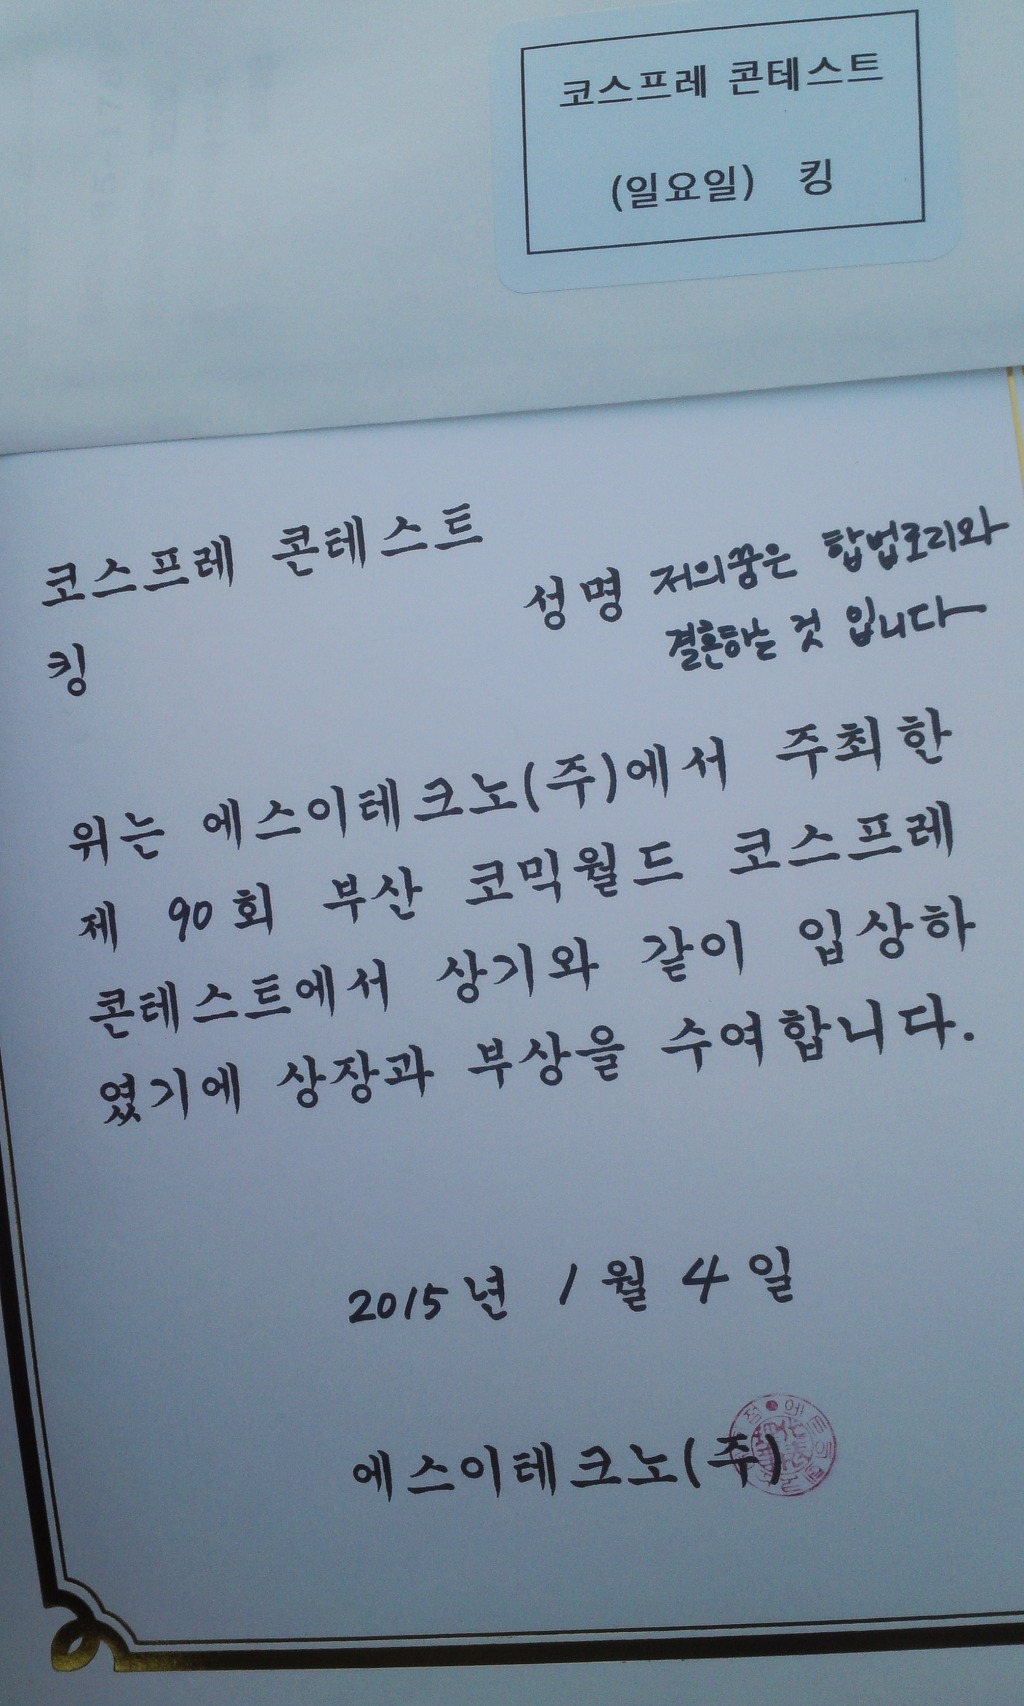 코스프레 콘테스트
(일요일) 킹
코스프레 콘테스트
킹
성명 저의꿈은 합법로리와
결혼하는 것 입니다
위는 에스이테크노(주)에서 주최한
제 90회 부산 코믹월드 코스프레
콘테스트에서 상기와 같이 입상하
였기에 상장과 부상을 수여합니다.
2015년 1월 4일
에스이테크노(주)